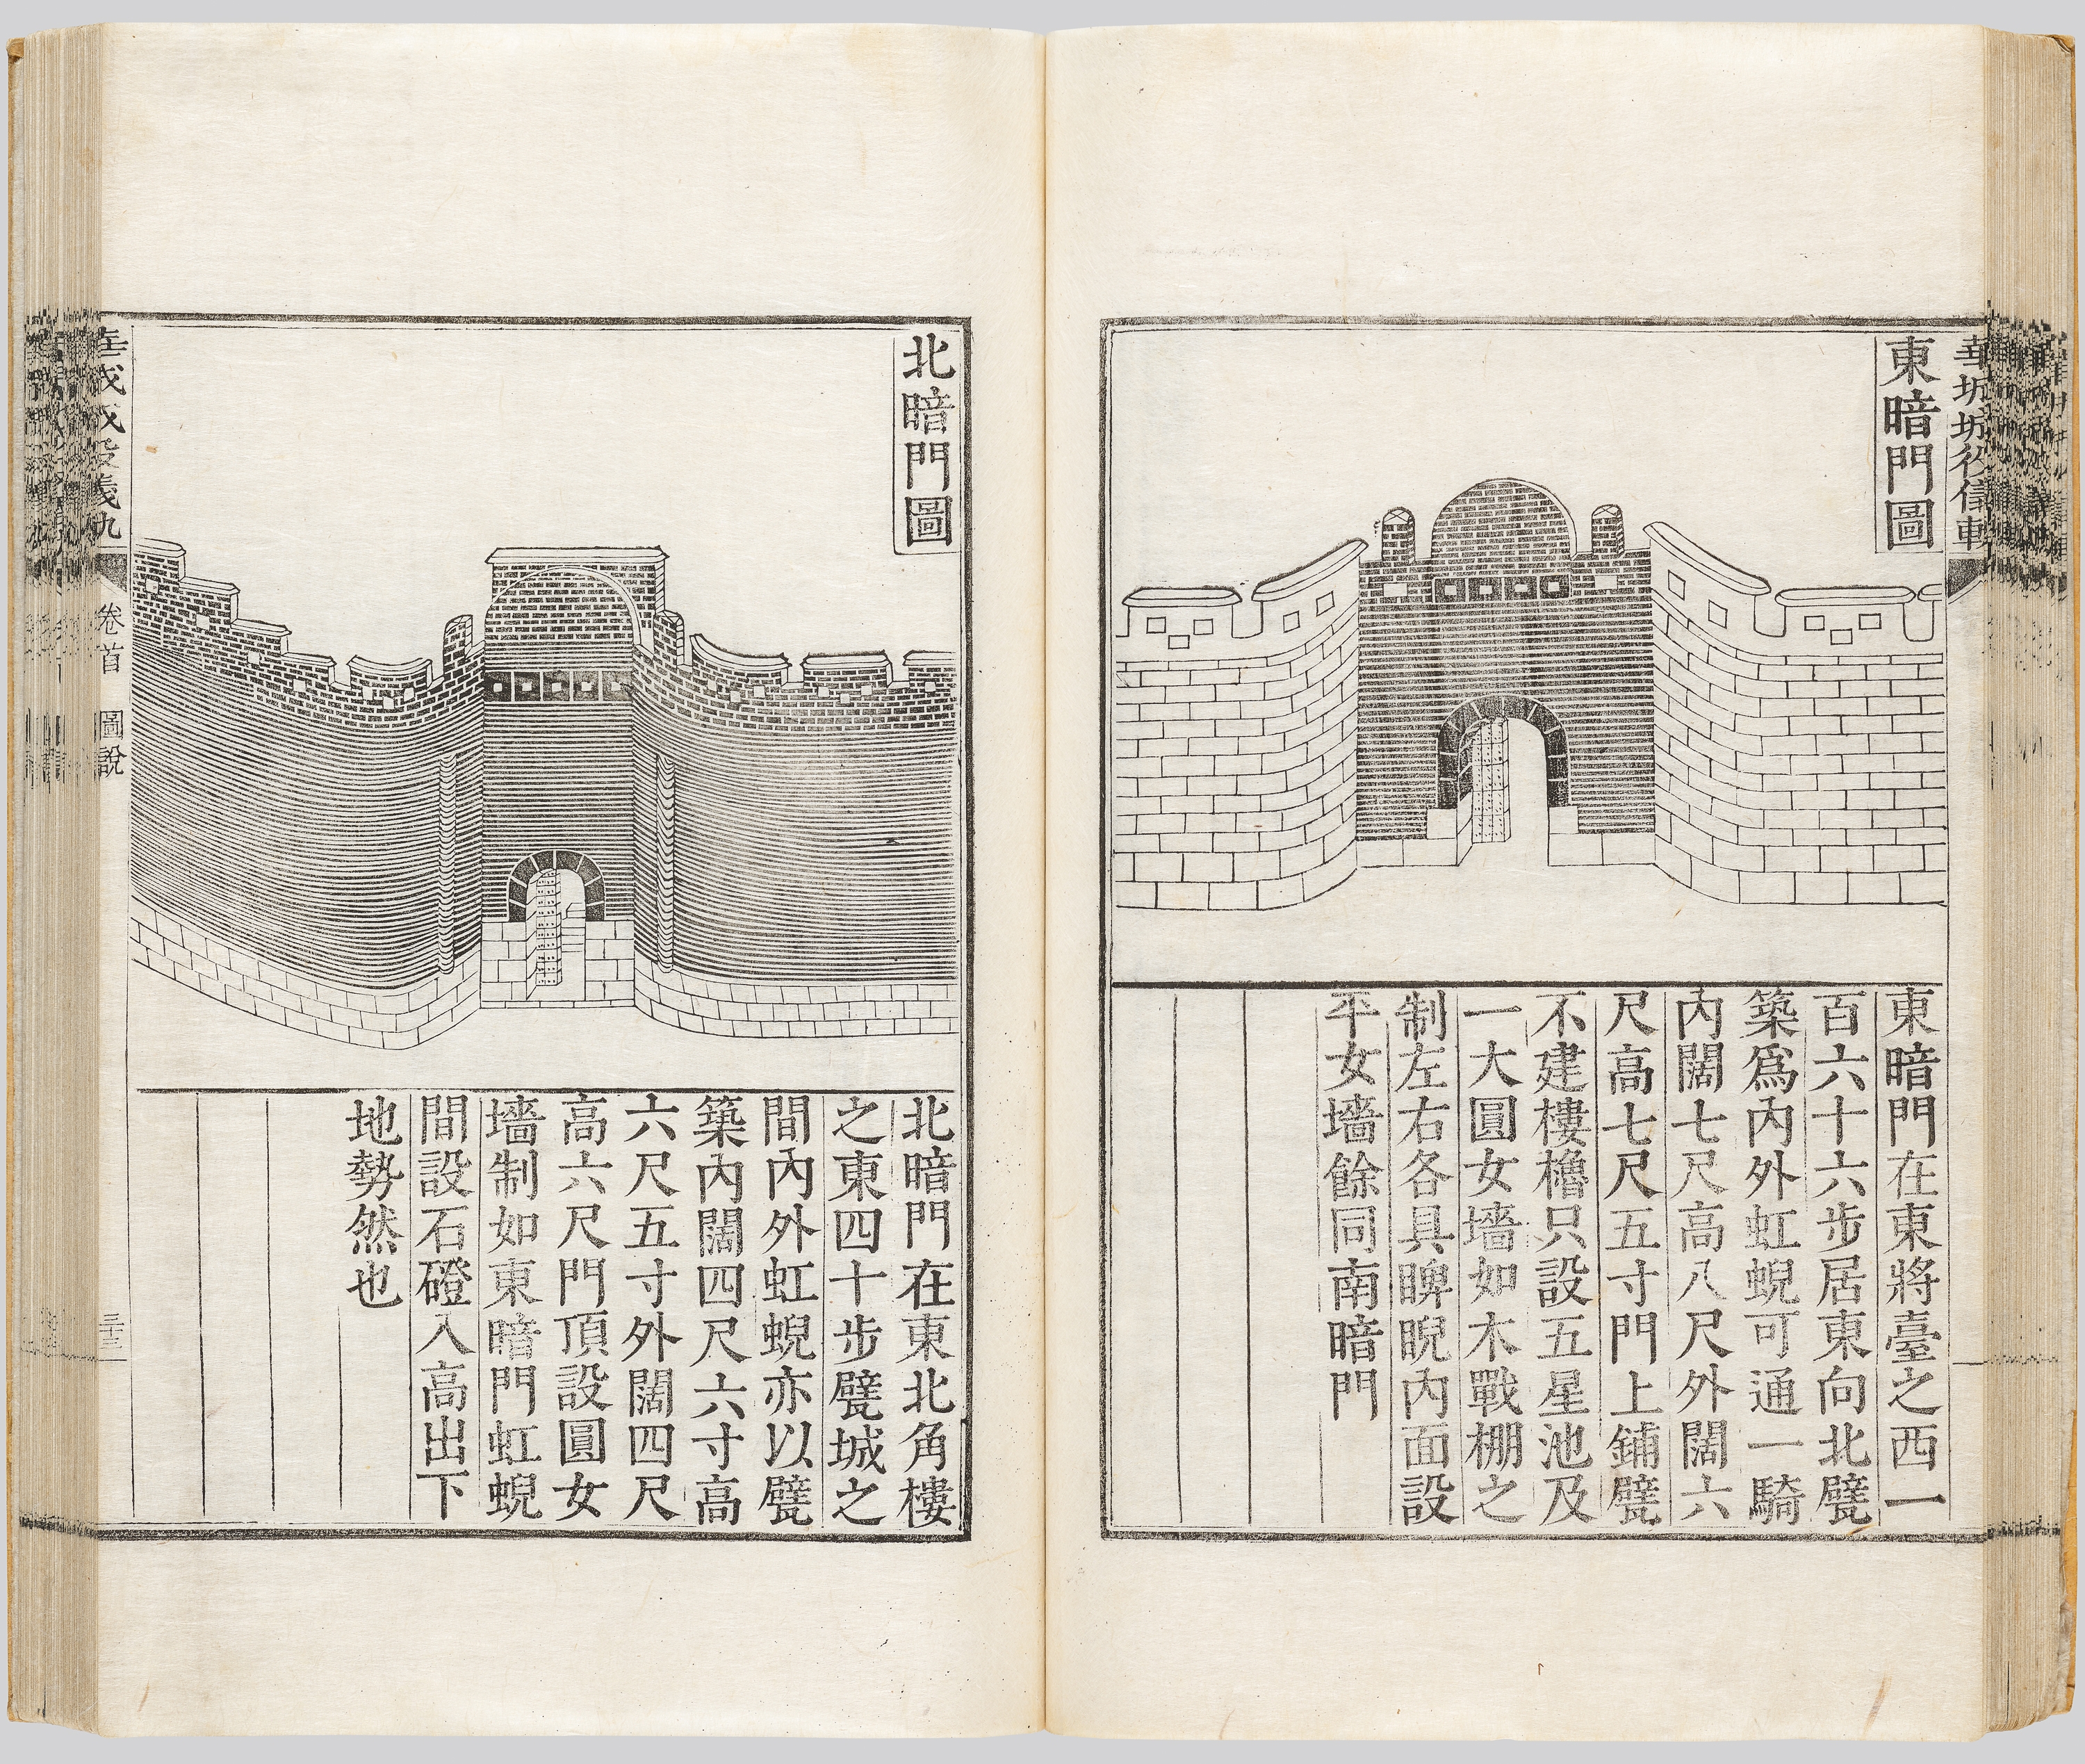 東暗門圖
東暗門在東將臺之西一
百六十六步居東向北甓
築爲內外虹蜺可通一騎
內闊七尺高八尺外闊六
尺高七尺五寸門上鋪甓
不建樓櫓只設五星池及
一大圓女墻如木戰棚之
制左右各具睥睨內面設
平女墻餘同南暗門
北暗門圖
北暗門在東北角樓
之東四十步甓城之
間內外虹蜺亦以甓
築內闊四尺六寸高
六尺五寸外闊四尺
高六尺門頂設圓女
墻制如東暗門虹蜺
間設石磴入高出下
地勢然也
卷首 圖說
三十三